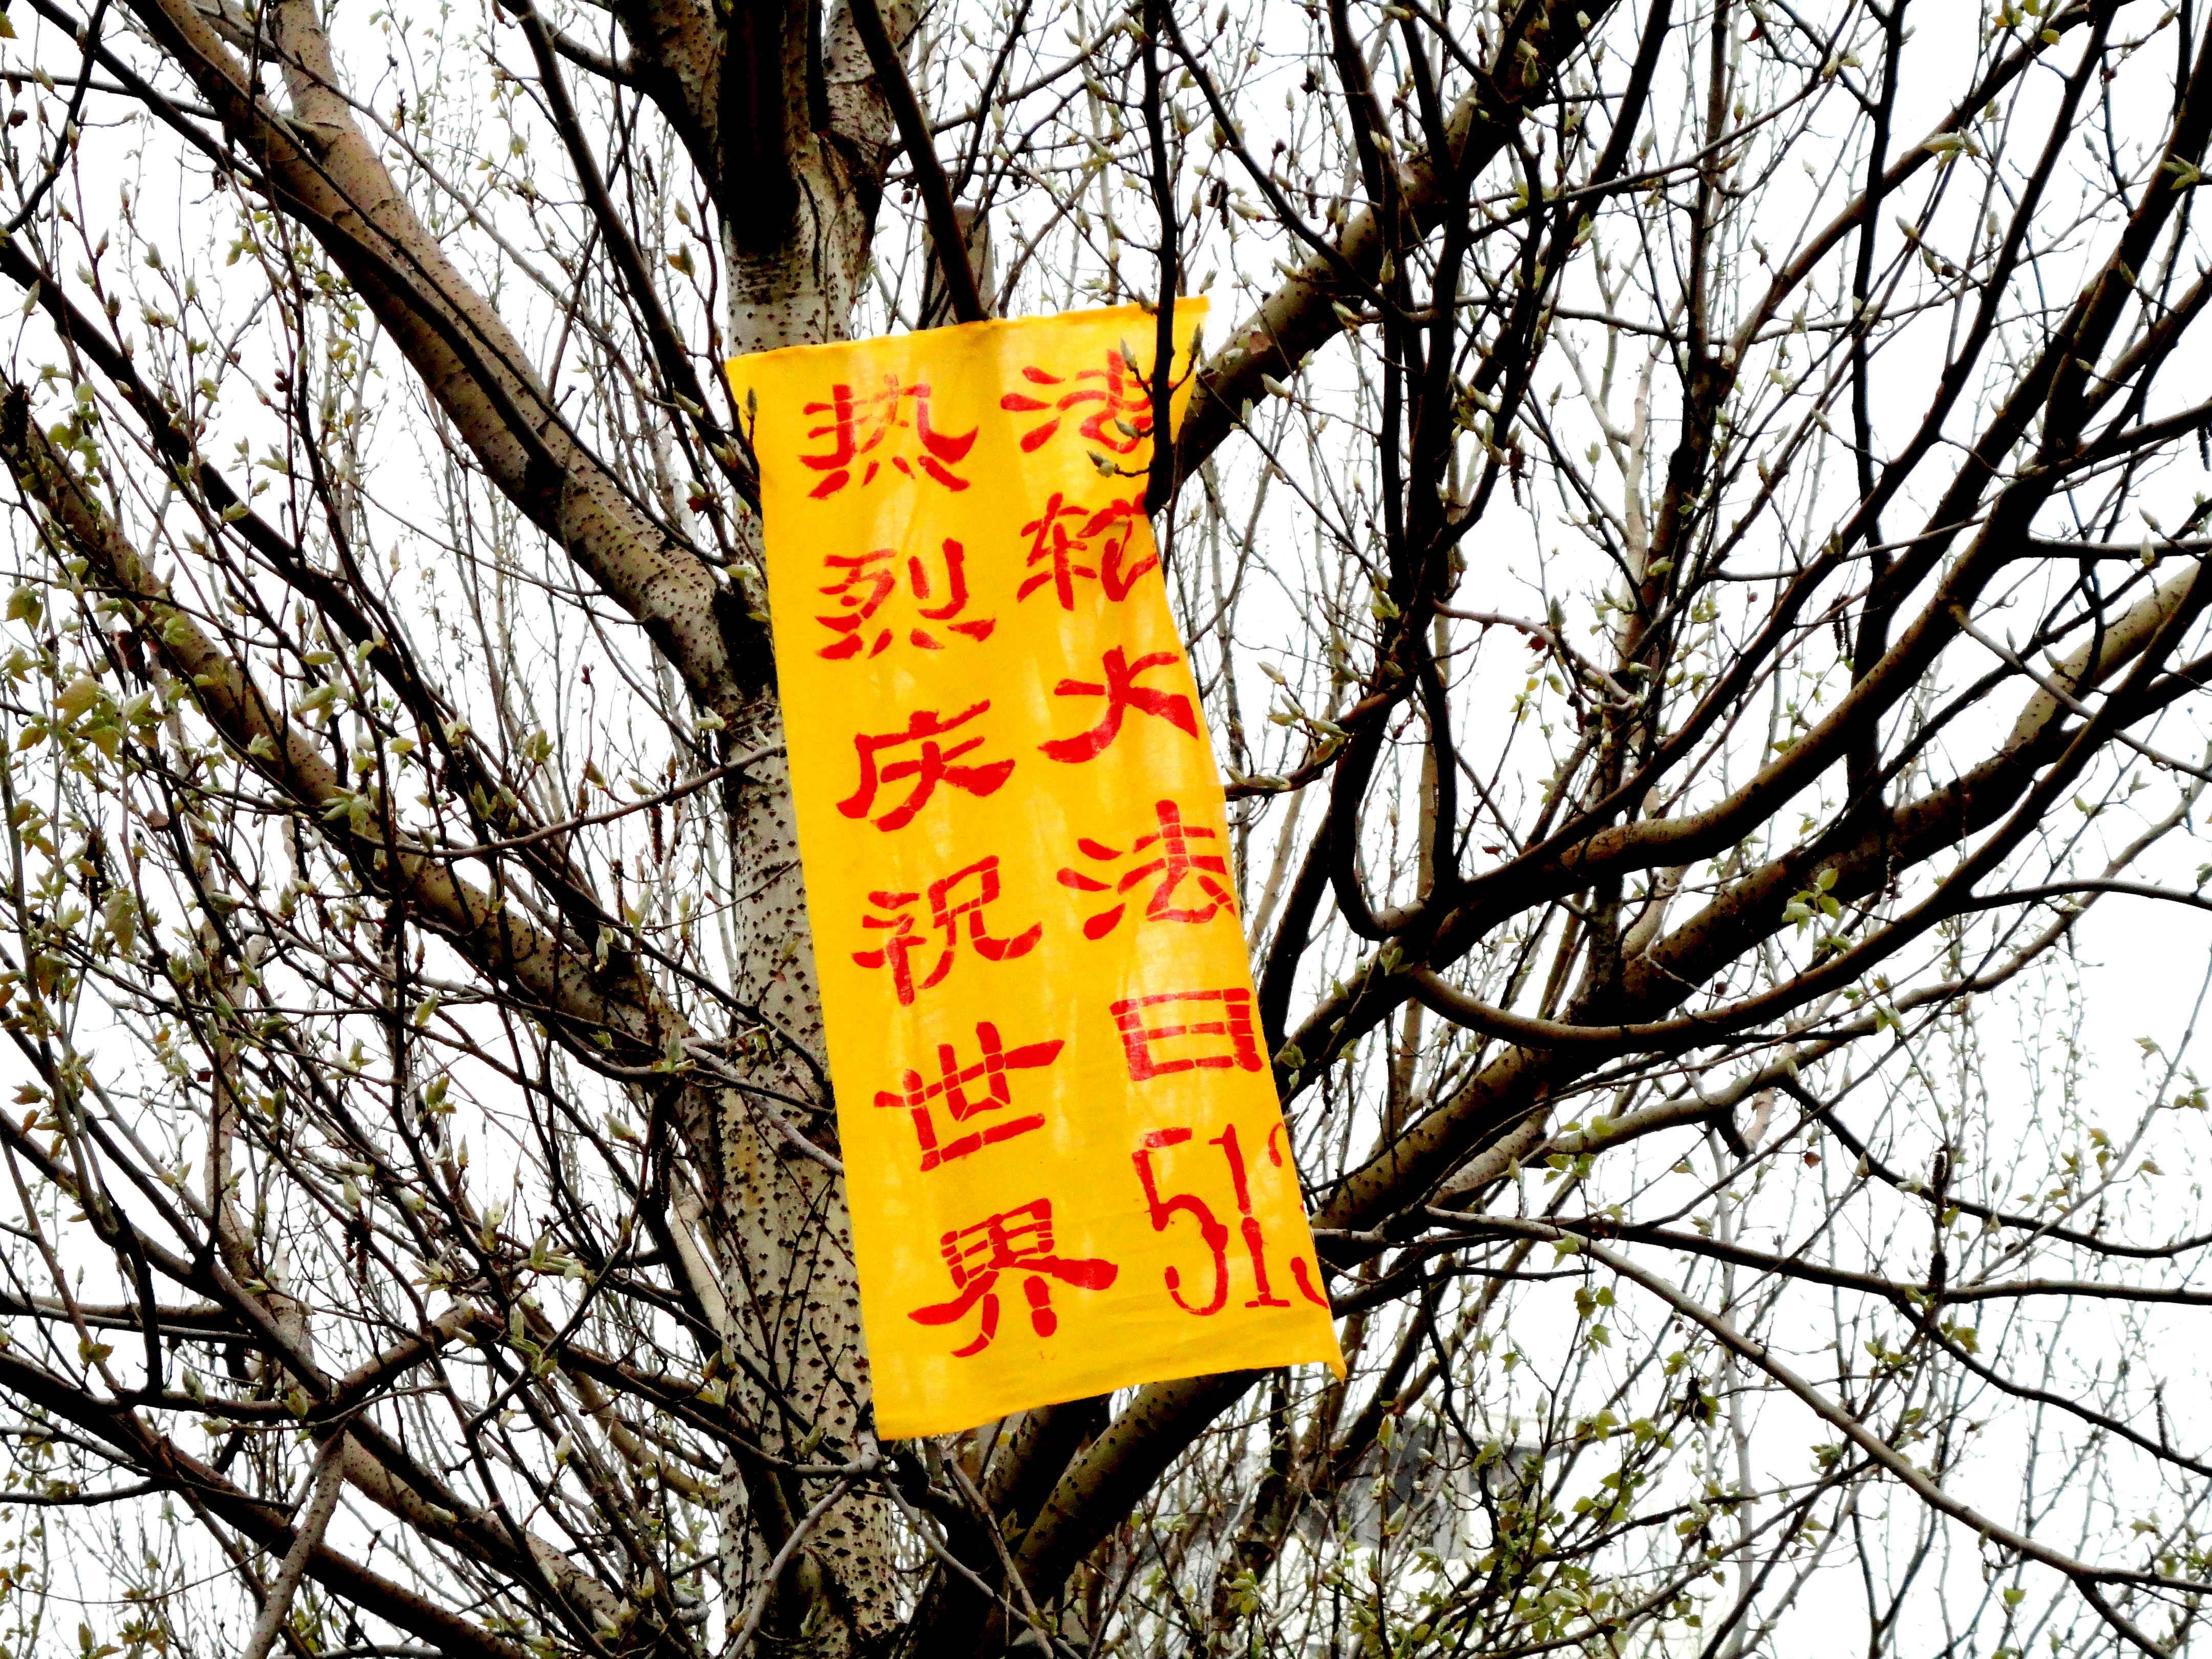 热烈庆祝世界
法轮大法日513